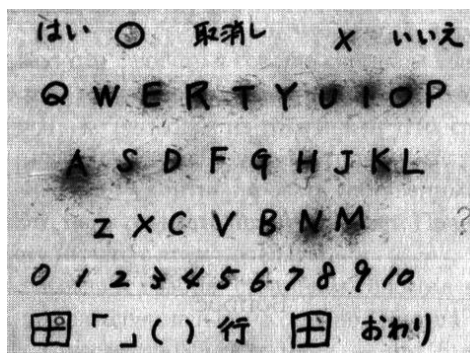 はい ○ 取消し × いいえ
Q W E R T Y U I O P
A S D F G H J K L
Z X C V B N M ?
0 1 2 3 4 5 6 7 8 9 10
田 「 」 ( ) 行 田 おわり